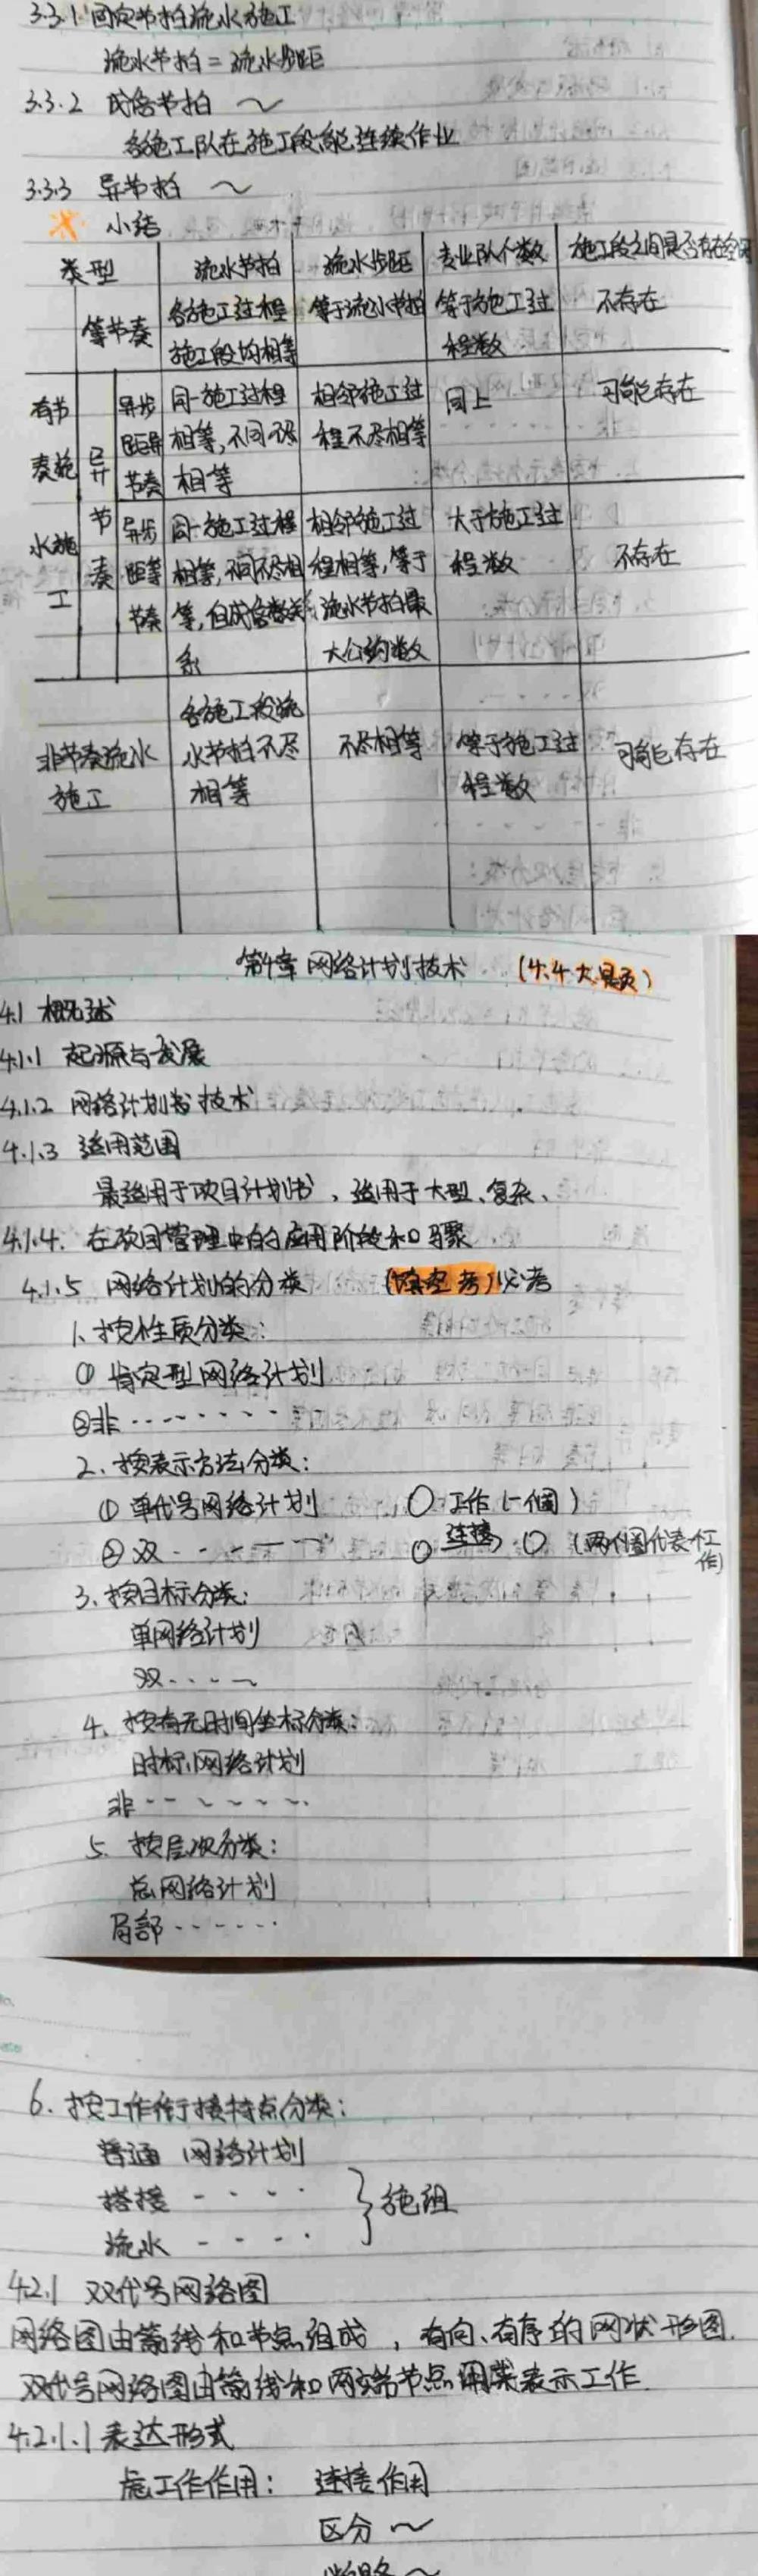 3.3.1 固定节拍流水施工
流水节拍=流水步距
3.3.2 成倍节拍 ~
各施工队在施工段能连续作业
3.3.3 异节拍 ~
小结
类型 流水节拍 流水步距 专业队个数 施工段之间是否存在空闲
等节奏 各施工过程 等于流水节拍 等于施工过 不存在
施工段均相等 程数
有节 异步 同一施工过程 相邻施工过 同上 可能存在
奏流 异 距异 相等,不同不尽 程不尽相等
节奏 相等
水施 节 异步 同一施工过程 相邻施工过 大于施工过 不存在
奏 距等 相等,不同不尽相 程相等,等于 程数
工 节奏 等,但成倍数关 流水节拍最
系 大公约数
各施工段流
非节奏流水 水节拍不尽 不尽相等 等于施工过 可能存在
施工 相等 程数
第4章 网络计划技术 (4.4大题页)
4.1 概述
4.1.1 起源与发展
4.1.2 网络计划技术
4.1.3 适用范围
最适用于项目计划书、适用于大型、复杂、
4.1.4. 在项目管理中的应用阶段和步骤
4.1.5 网络计划的分类 (填空考)必考
1. 按性质分类:
① 肯定型网络计划
②非 --------
2. 按表示方法分类:
① 单代号网络计划 ○工作(一个圈)
② 双 ------ ○ 连接 ○ (两个圈代表个工作)
3. 按目标分类:
单网络计划
双 - - - ~
4. 按有无时间坐标分类:
时标网络计划
非 - - - - - -
5. 按层次分类:
总网络计划
局部 ------
6. 按工作衔接特点分类:
普通 网络计划
搭接 - - - -
流水 - - - - } 施组
4.2.1 双代号网络图
网络图由箭线和节点组成,有向、有序的网状形图.
双代号网络图由箭线和两端节点用来表示工作.
4.2.1.1 表达形式
虚工作作用: 连接作用
区分 ~
断路 ~